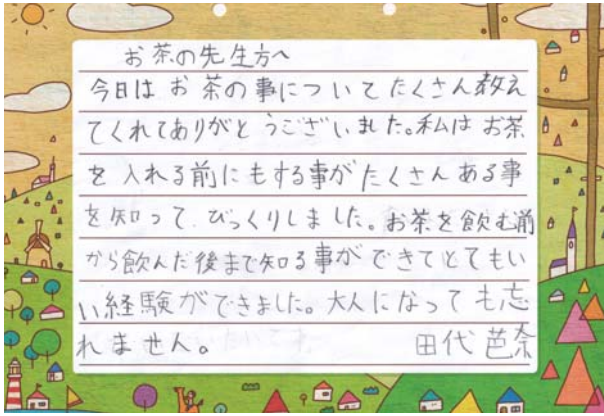 お茶の先生方へ
今日はお茶の事についてたくさん教え
てくれてありがとうございました。私はお茶
を入れる前にもする事がたくさんある事
を知って、びっくりしました。お茶を飲む前
から飲んだ後まで知る事ができてとてもい
い経験ができました。大人になっても忘
れません。 田代芭奈